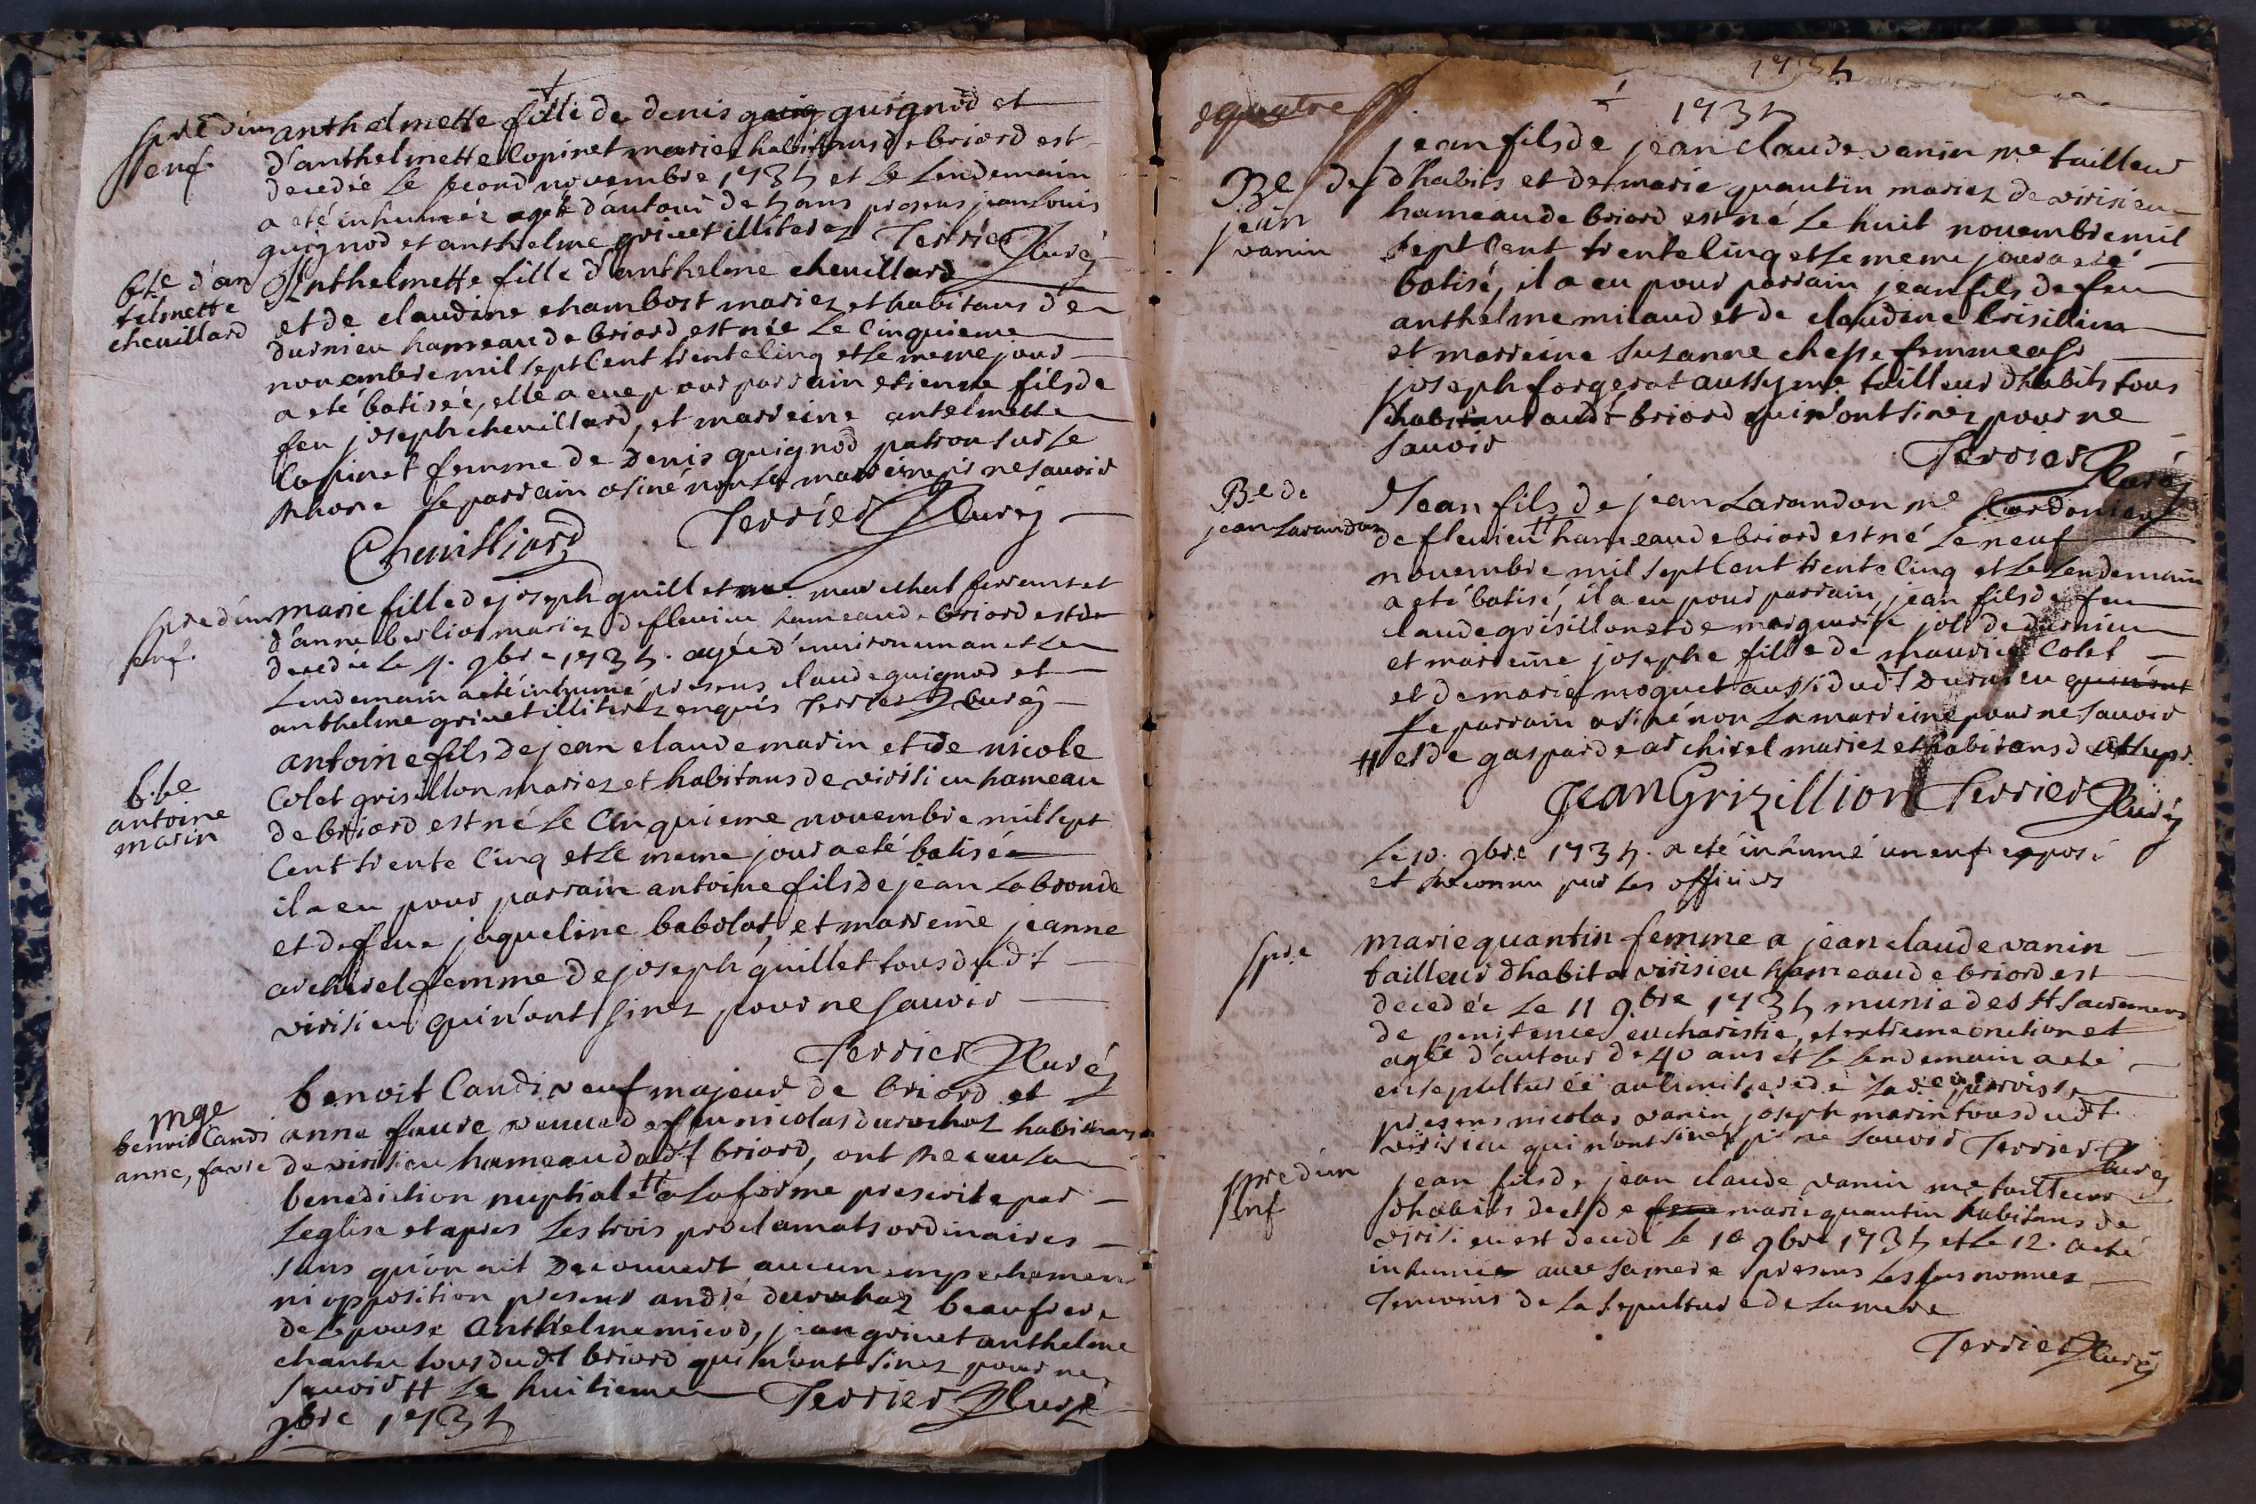 spre d'un
enf.
anthelmette fille de denis guig guignod et
d'anthelmette Copinet mariez habitans de briord est
decedée le second novembre 1735 et le lendemain
a eté inhumée agée d'autour de 5 ans presens jean louis
guignod et anthelme grivet illiterez Terrier Curé
bte d'an
telmette
chevillard
Anthelmette fille d'anthelme chevillard
et de claudine chambost mariez et habitans de
durnieu hameau de briord est née le cinquieme
novembre mil sept cent trente cinq et le meme jour
a eté batiseé, elle a eue pour parrain etienne fils de
feu joseph chevillard, et marreine antelmette
Copinet femme de Denis guignod patron sur le
Rhone le parrain a siné non la marreine pr ne savoir
Chevilliard Terrier Curé
spre d'un
enf.
marie fille de joseph guillet me marechal ferrant et
d'anne berlion mariez de flevieu hameau de briord est de
decedée le 4. 9bre 1735. agée d'environ un an et le
lendemain a eté inhumé presens claude guignod et
anthelme grivet illiterez enquis Terrier Curé
b.te
antoine
marin
antoine fils de jean claude marin et de nicole
Colet grisillon mariez et habitans de virisieu hameau
de briord est né le cinquieme novembre mil sept
cent trente cinq et le meme jour a eté batisé
il a eu pour parrain antoine fils de jean labronde
et de feue jaqueline babolat, et marreine jeanne
archirel femme de joseph guillet tous dudt
virisieu qui n'ont sinez pour ne savoir
Terrier Curé
mge
benoit Candi
anne, favre
benoit Candi veuf majeur de briord et
anne favre veuve de feu nicolas durochat habitans
de virisieu hameau dudt briord, ont receu la
benediction nuptiale # a la forme prescrite par
l'eglise et apres les trois proclamats ordinaires
sans qu'on ait decouvert aucun empechement
ni opposition presens andré durochat beaufrere
de l'epouse Anthelme miod, jean grivet anthelme
chantu tous dudt briord qui n'ont sinez pour ne
savoir # le huitieme Terrier Curé
9bre 1735
1735
quatre
1735
Be de
jean
vanin
jean fils de jean claude vanin me tailleur
d'habits et de marie quantin mariez de virisieu
hameau de briord est né le huit novembre mil
sept cent trente cinq et le meme jour a eté
batisé, il a eu pour parrain jean fils de feu
anthelme milaud et de claudine Crisillion
et marreine suzanne chesse femme a
joseph forgerat aussy me tailleur d'habits tous
habitant audt briord qui n'ont sinez pour ne
savoir
Terrier Curé
Be de
jean Larandon
Jean fils de jean Larandon me Cordonier
de flevieu # hameau de briord est né le neuf
novembre mil sept cent trente cinq et le lendemain
a eté batisé, il a eu pour parrain jean fils de feu
claude grisillon et de marguerite joli de durnieu
et marreine josephe fille de maurice Colet
et de marie moquet aussi dudt Durnieu qui n'ont
le parrain a siné non la marreine pour ne savoir
# et de gasparde archirel mariez et habitans dudt
Jean Grizillion Terrier Curé
Le 10. 9bre 1735. a eté inhumé un enf exposé
et reconnu par les officiers
spre
marie quantin femme a jean claude vanin
tailleur d'habit a virisieu hameau de briord est
decedée le 11 9.bre 1735 munie des sts sacremens
de penitence eucharistie, et extreme onction et
agée d'autour de 40 ans et le lendemain a eté
ensepulturée au cimitiere de lad.e parroisse
presens nicolas vanin joseph marin tous dudt
virisieu qui n'ont sinés pr ne savoir Terrier Curé
spre d'un
enf
jean fils de jean claude vanin me tailleur
d'habits de et de feue marie quantin habitans de
virisieu est decedé le 10 9bre 1735 et le 12. a eté
inhumé avec sa mere presens les sus nommez
Temoins de la sepulture de la mere
Terrier Curé